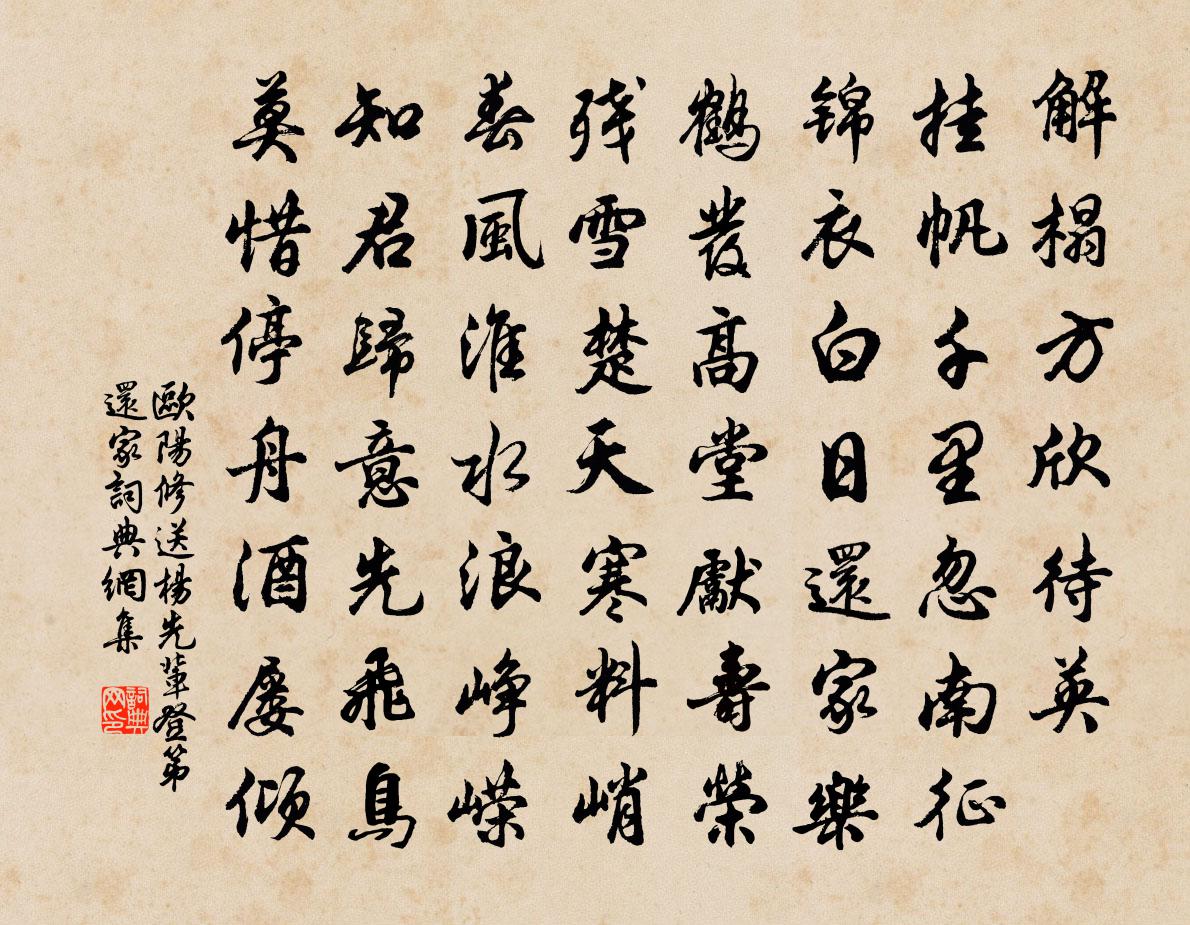 解榻方欣待英
挂帆千里忽南征
锦衣白日還家樂
鶴發高堂獻壽榮
残雪楚天寒料峭
春風淮水浪峥嵘
知君歸意先飛鳥
莫惜停舟酒屡倾
歐陽修送楊先輩登第
還家詞典網集
詞典网印